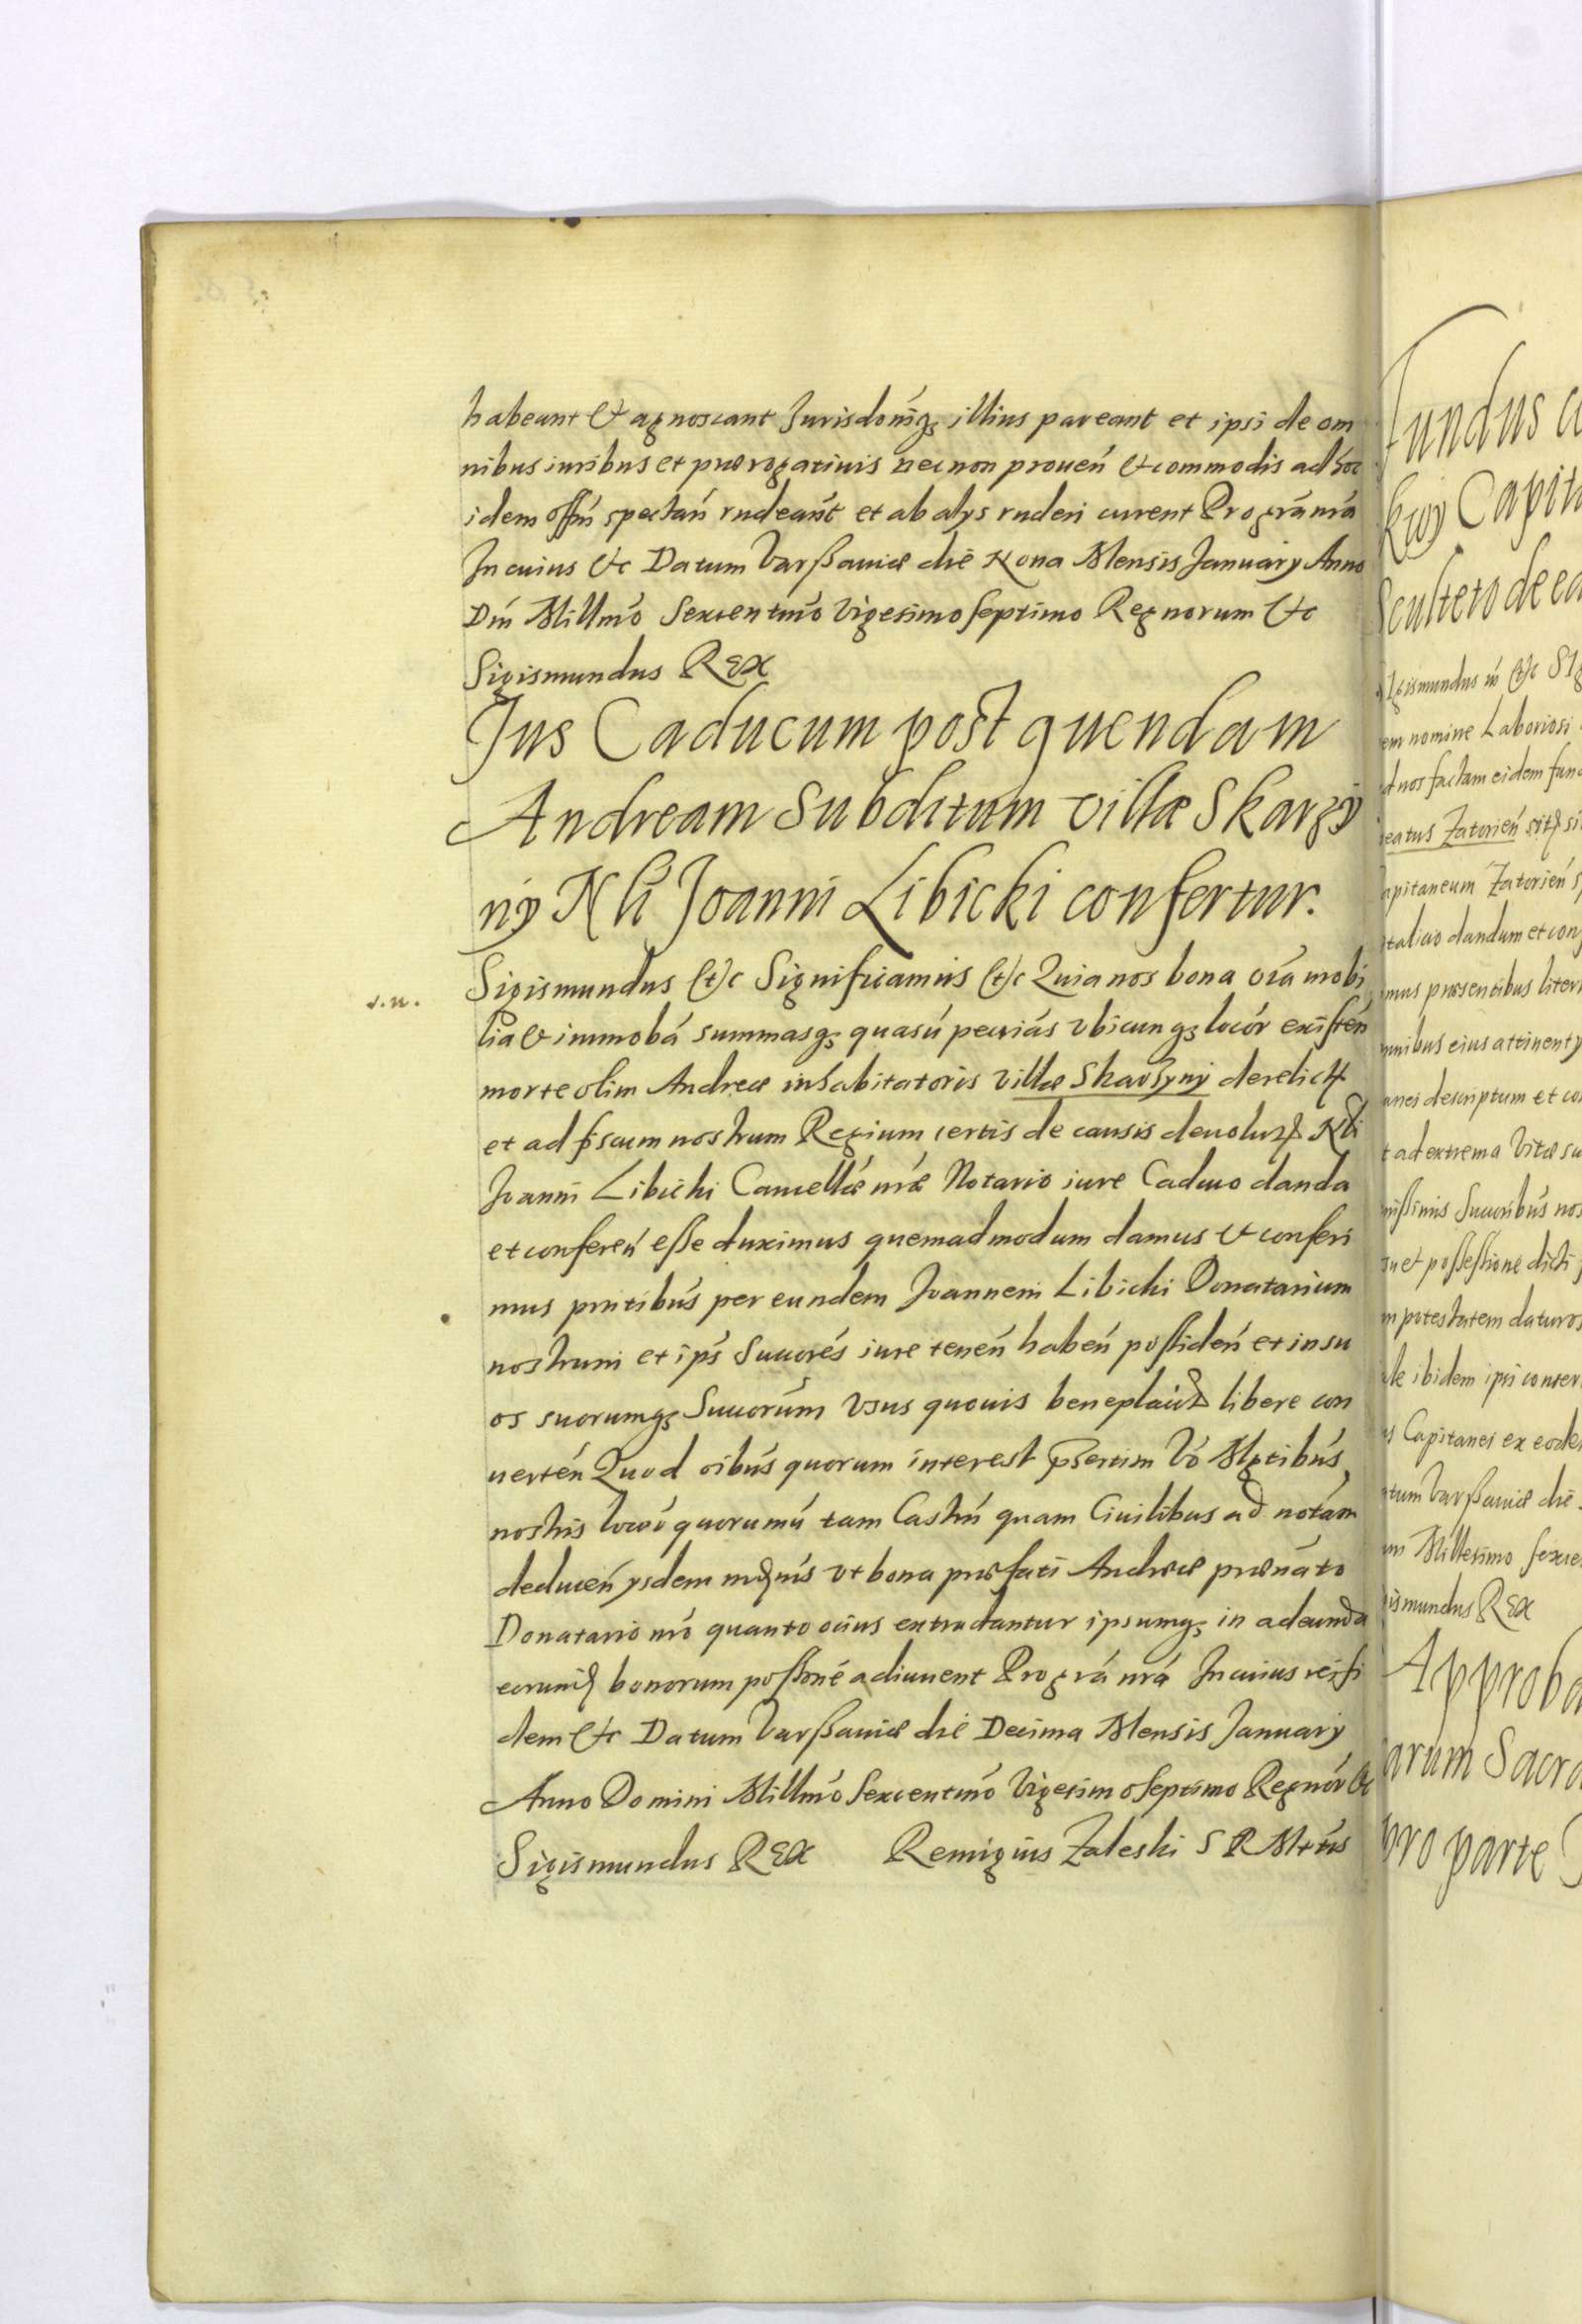 habeant & agnoscant Jurisdoniq3 illius pareant et ipsi de om
nibus iuribus et prærogatiuis necnon proueń & commodis ad hoc
idem offń spectań rndeańt et ab alys rnderi curent Pro grá nrá
In cuius &c Datum Varßauiæ die Nona Mensis January Anno
Dńi Millmó Sexcentmó Vigesimo septimo Regnorum &c
Sigismundus REX
Jus Caducum post quendam
Andream Subditum villæ Skarży
ny Nli Joanni Libicki confertur.
s.n.
Sigismundus &c Significamus &c Quia nos bona oiá mobi
lia & immobá summasq3 quasú pecuiás vbicunq3 locór existén
morte olim Andreæ inhabitatoris villæ Skarżyny derelict
et ad fiscum nostrum Regium certis de causis deuolut Nli
Joanni Libicki Cancellæ nræ Notario iure Caduco danda
et confereń esse duximus quemadmodum damus & conferi
mus pntibus per eundem Joannem Libicki Donatarium
nostrum et ips Succorés iure teneń habeń possideń et in su
os suorumq3 Succorúm vsus quouis beneplacit libere con
uertén Quod oibús quorum interest psertim Vó Mgtibús
nostris locoú quorumú tam Castrń quam Ciuilibus ad notám
deducen ysdem mús vt bona præfati Andreæ prænáto
Donatario nró quanto ocius extradantur ipsumq3 in adeunda
eorund bonorum possoné adiuuent Pro grá nrá In cuius rei fi
dem &c Datum Varßauiæ die Decima Mensis January
Anno Domini Millmó Sexcentmó Vigesimo septimo Regnór &c
Sigismundus REX Remigius Zaleski S R Mttis
Fundus
kwy Capit
Sculteto de ea
Sigismundus &c
em nomine Laboriosi
d nos factam eidem fun
eatus Zatorień
apitaneum Zatorień
italicio dandum et con
mus præsentibus liter
mnibus eius attinenty
anei descriptum et co
t ad extrema Vitæ su
nissimis Succoribús nos
su et possessione dicti
m potestatem daturos
le ibidem ipsi conser
s Capitanei ex eode
tum Varßauiæ die
ni Millesimo sexce
ismundus REX
Approba
arum Sacra
pro parte